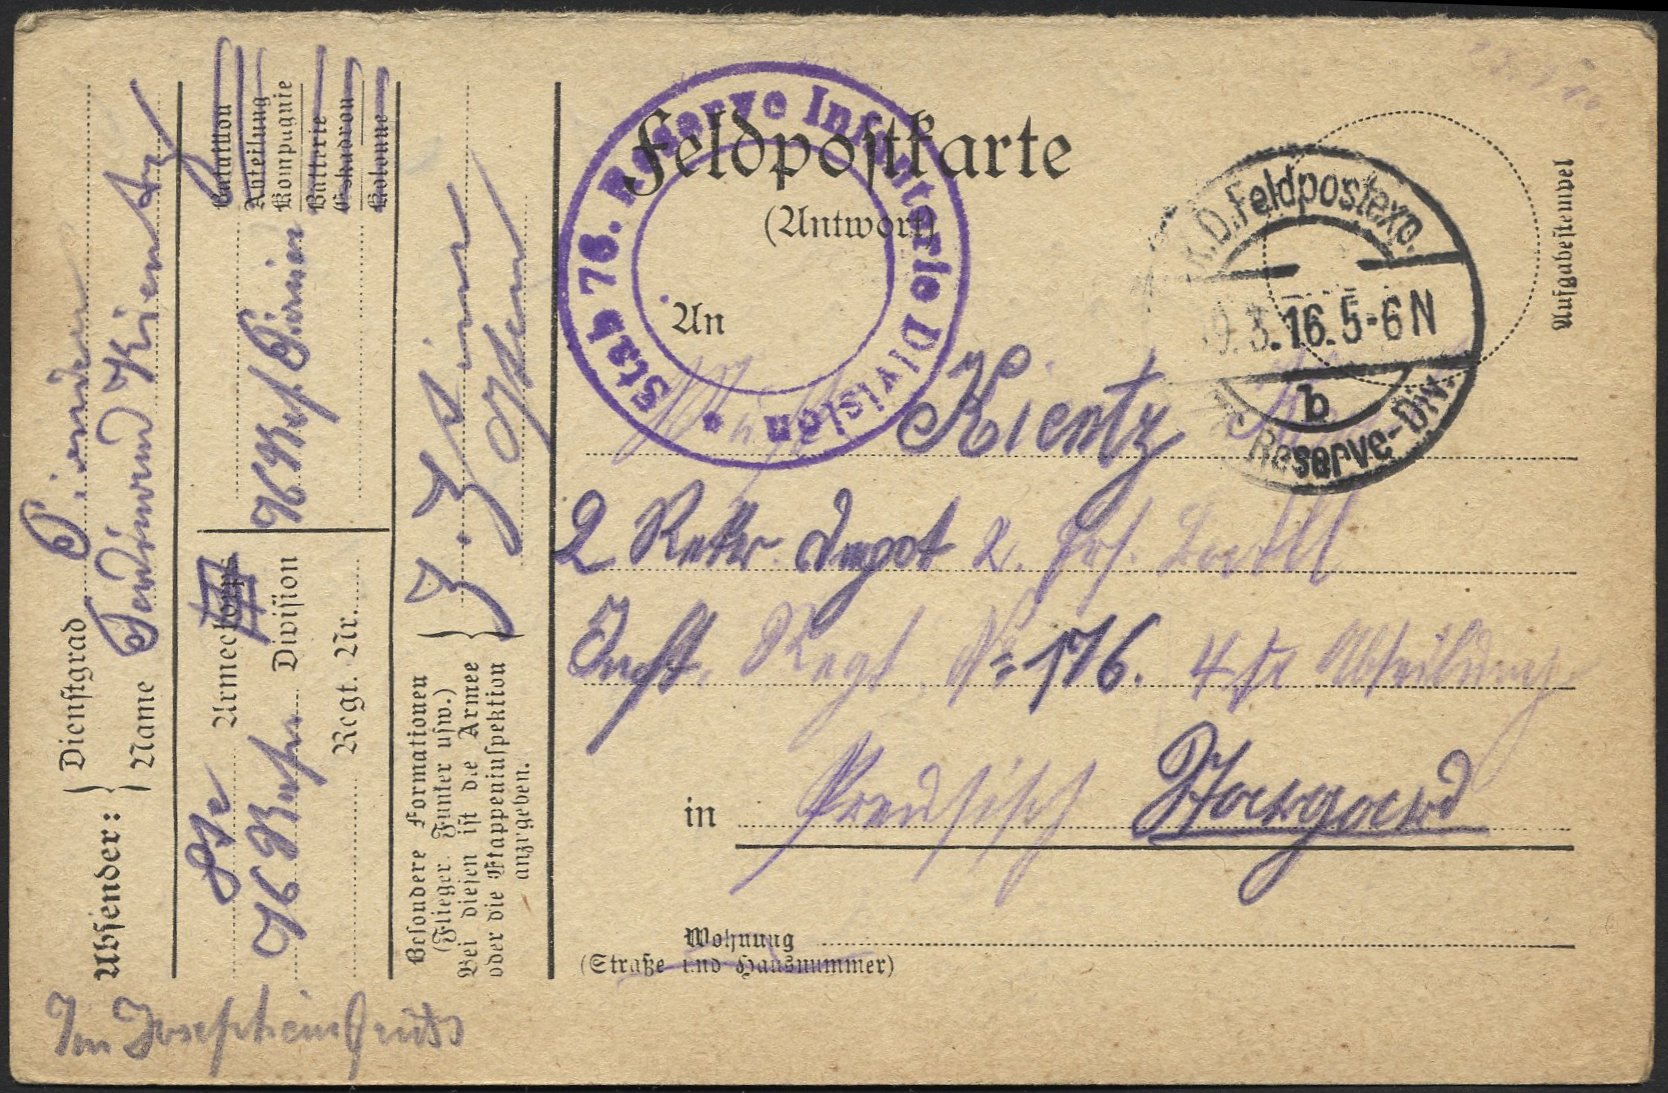 Feldpostkarte
(Antwort)
Stab 76. Reserve Infanterie Division *
K.D. Feldpostexp.
9.3.16. 5-6 N
b
Reserve-Div.
Aufgabestempel
An
Kientz
2 Rekr. Depot 2. Ers. Batll
Inft. Regt. No 176. 4te Abteilung
in Preusisch Stargard
Wohnung
(Straße und Hausnummer)
Absender:
Dienstgrad Pionier
Name Ferdinand Kientz
8te Armee
korps
76 Res. Division
Regt. Nr.
76 Res. Pionier
Bataillon
Abteilung
Kompagnie
Batterie
Eskadron
Kolonne
Besondere Formationen
(Flieger, Funker usw.)
Bei diesen ist die Armee
oder die Etappeninspektion
anzugeben.